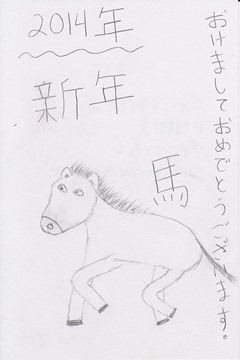 2014年
新年
馬
おけましておめでとうございます。